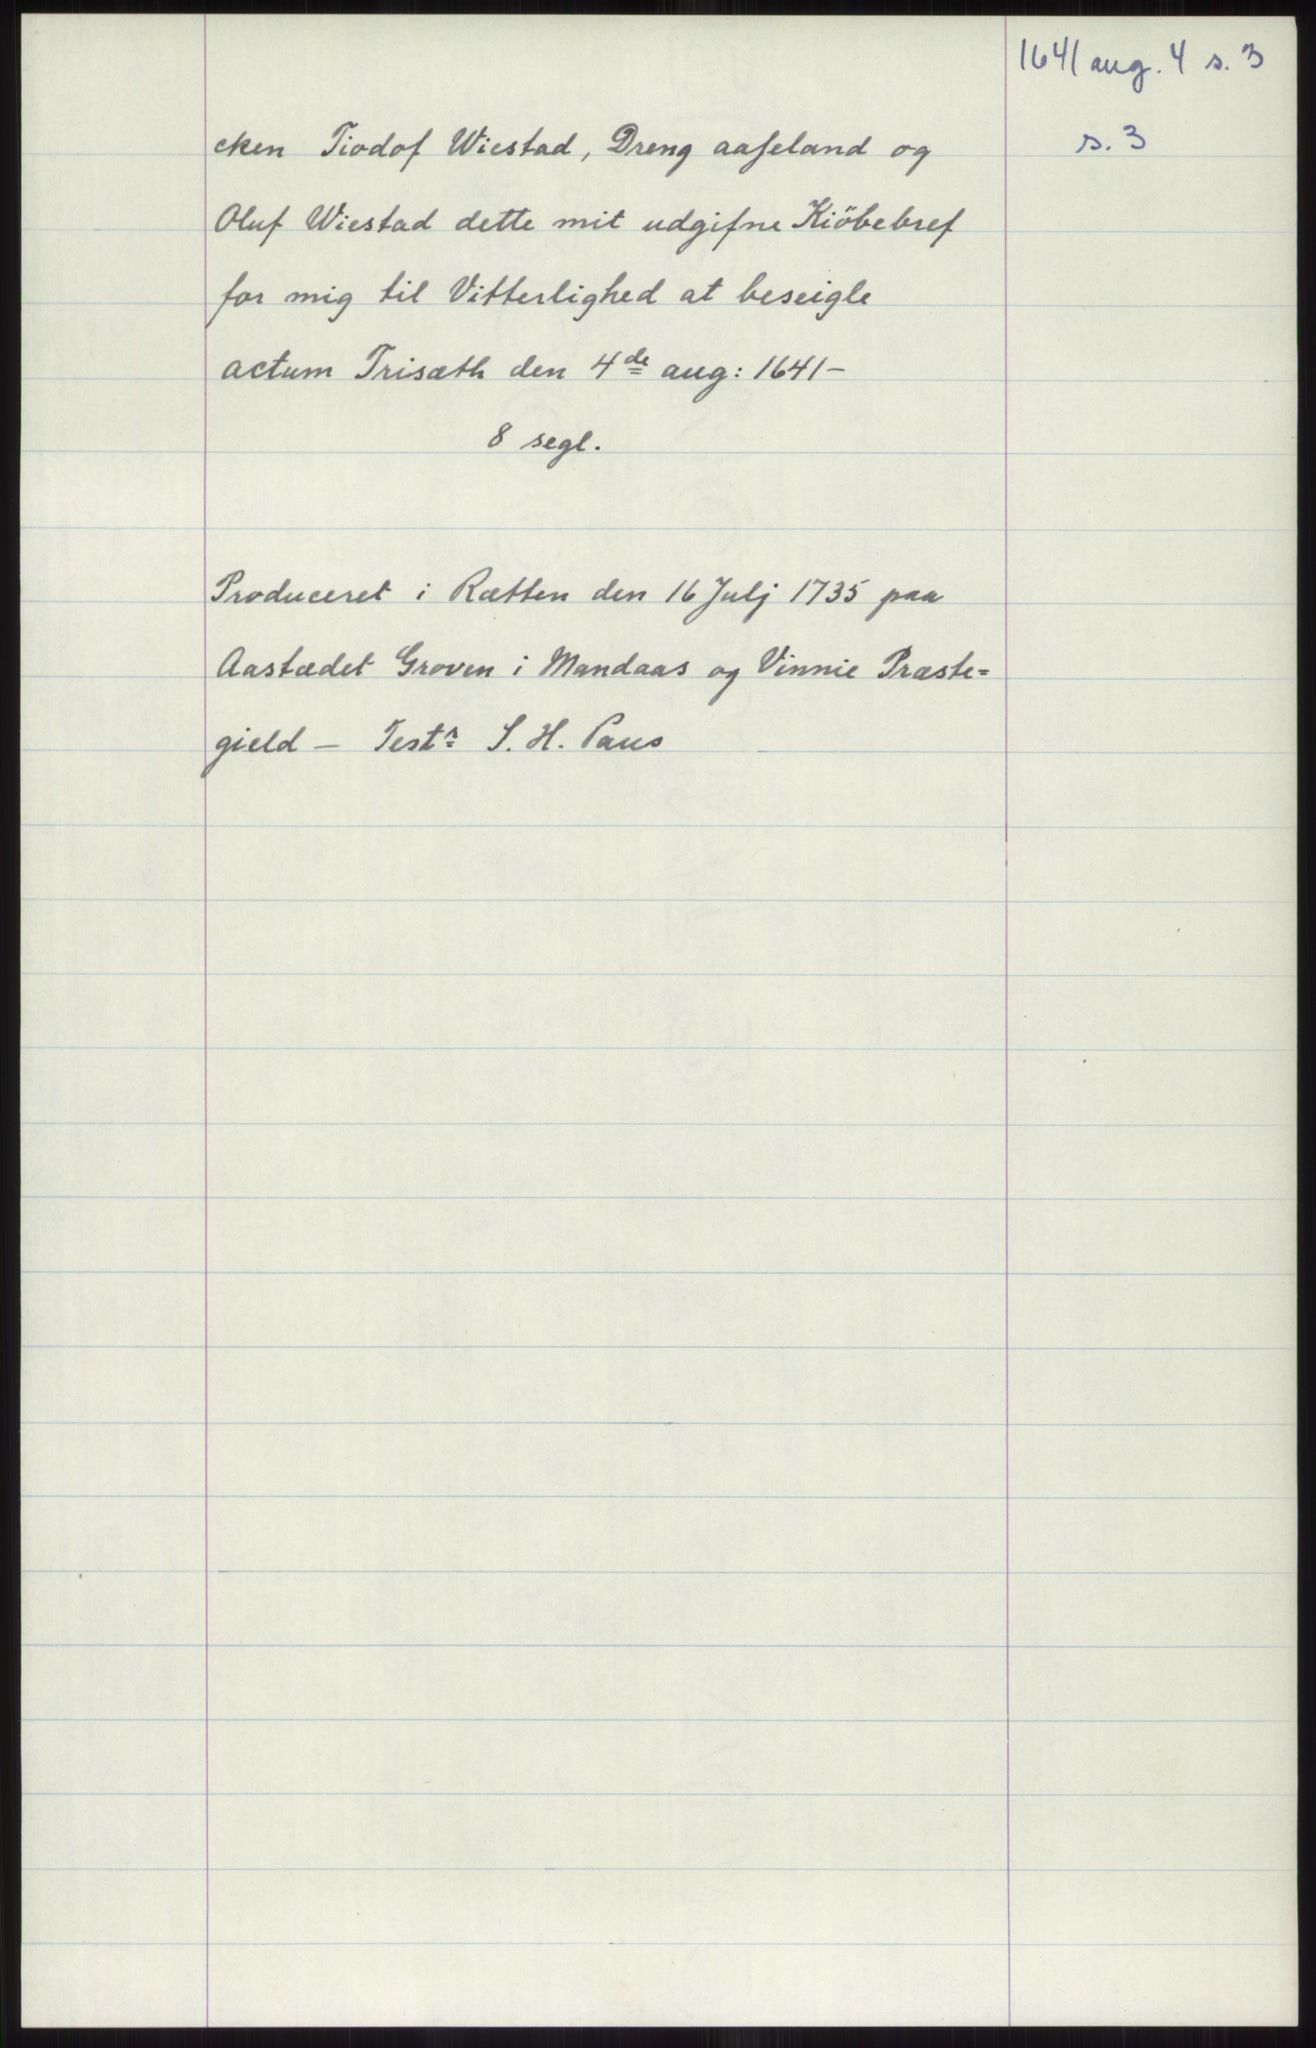 1641 aug. 4 s. 3
s. 3
cken Tiodof Wiestad, Dreng aaseland og
Oluf Wiestad dette mit udgifne Kiöbebref
for mig til Vitterlighed at beseigle
actum Trisæth den 4de aug: 1641-
8 segl.
Produceret i Rætten den 16 Julj 1735 paa
Aastædet Groven i Mandaas og Vinnie Præste=
gield - Testr S. H. Paus